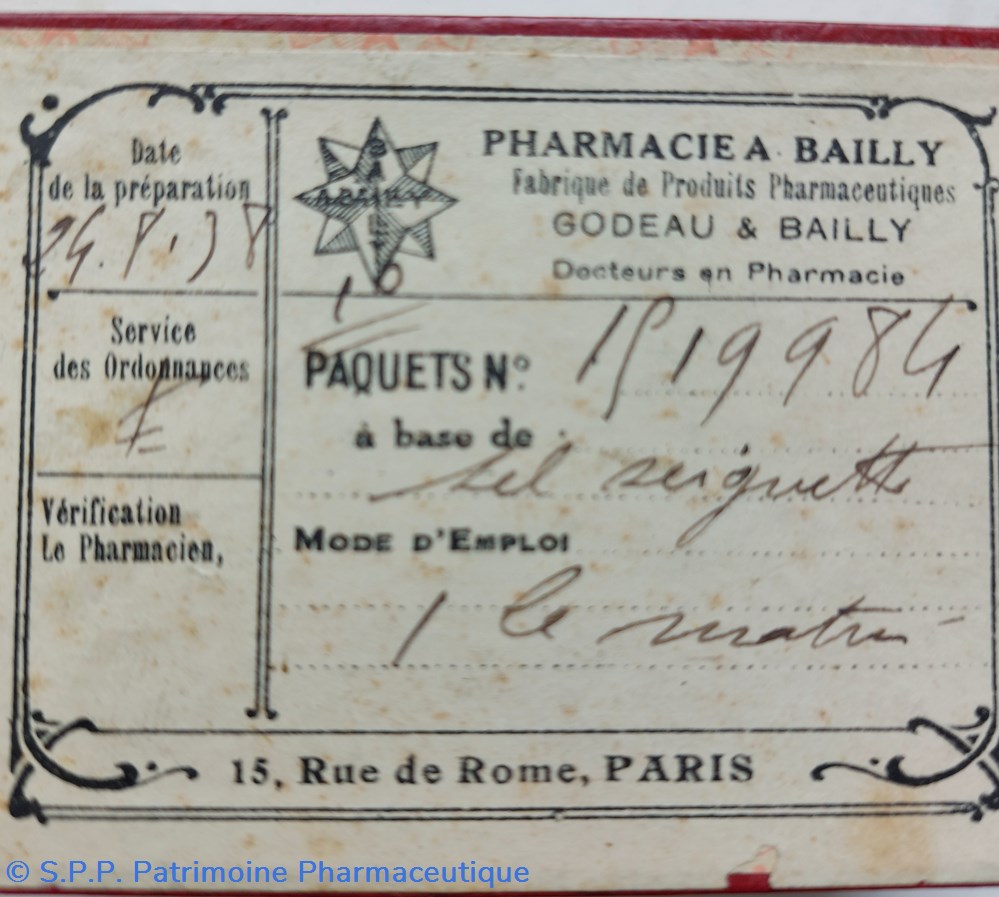 Date
de la préparation
Service
des Ordonnances
Vérification
Le Pharmacien,
A. BAILLY
BAILLY
PHARMACIE A. BAILLY
Fabrique de Produits Pharmaceutiques
GODEAU & BAILLY
Docteurs en Pharmacie
10
PAQUETS N°. 1519984
à base de
sel seignette
MODE D'EMPLOI
1 le matin
15, Rue de Rome, PARIS
© S.P.P. Patrimoine Pharmaceutique